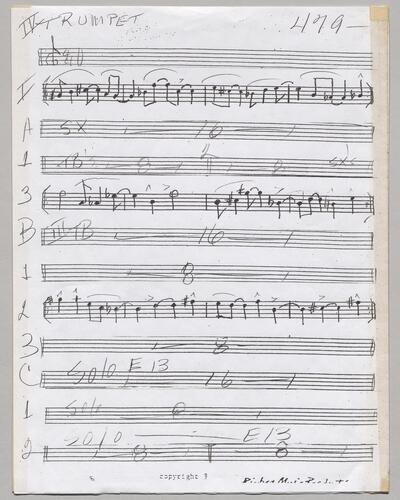 IV TRUMPET 479-
I
A SX 16
1 TB'S 8 8 SXS
3
B III TB 16
1 8
2
3 8
C Solo E13 16
1 Solo 8
2 Solo 8 E13 8
copyright